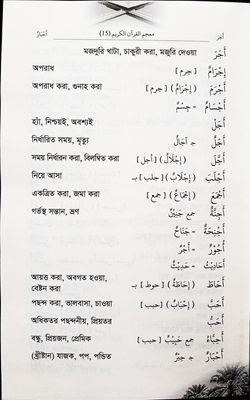 أَجَرَ معجم القرآن الكريم (15) أَحْبَارٌ
أَجَرَ মজদুরি খাটা, চাকুরী করা, মজুরি দেওয়া
إِجْرَامٌ অপরাধ
أَجْرَمَ (إِجْرَامٌ) [جرم] অপরাধ করা, গুনাহ করা
أَجْسَامٌ - جِسْمٌ
أَجَلْ হ্যাঁ, নিশ্চয়ই, অবশ্যই
أَجَلٌ ج آجَالٌ নির্ধারিত সময়, মৃত্যু
أَجَّلَ (إِجْلَالٌ) [أجل] সময় নির্ধারন করা, বিলম্বিত করা
أَجْلَبَ (إِجْلَابٌ) [جلب] بـ নিয়ে আসা
أَجْمَعَ (إِجْمَاعٌ) [جمع] একত্রিত করা, জমা করা
أَجِنَّةٌ جمع جَنِيْنٌ গর্ভস্থ সন্তান, ভ্রূণ
أَجْنِحَةٌ - جَنَاحٌ
أُجُوْرٌ - أَجْرٌ
أَحَادِيْثُ - حَدِيْثٌ
أَحَاطَ (إِحَاطَةٌ) [حوط] بـ আয়ত্ত করা, অবগত হওয়া,
বেষ্টন করা
أَحَبَّ (إِحْبَابٌ) [حبب] পছন্দ করা, ভালবাসা, চাওয়া
أَحَبُّ অধিকতর পছন্দনীয়, প্রিয়তর
أَحِبَّاءُ جمع حَبِيْبٌ [حبب] বন্ধু, প্রিয়জন, প্রেমিক
أَحْبَارٌ ج حِبْرٌ (খ্রীষ্টান) যাজক, পপ, পন্ডিত